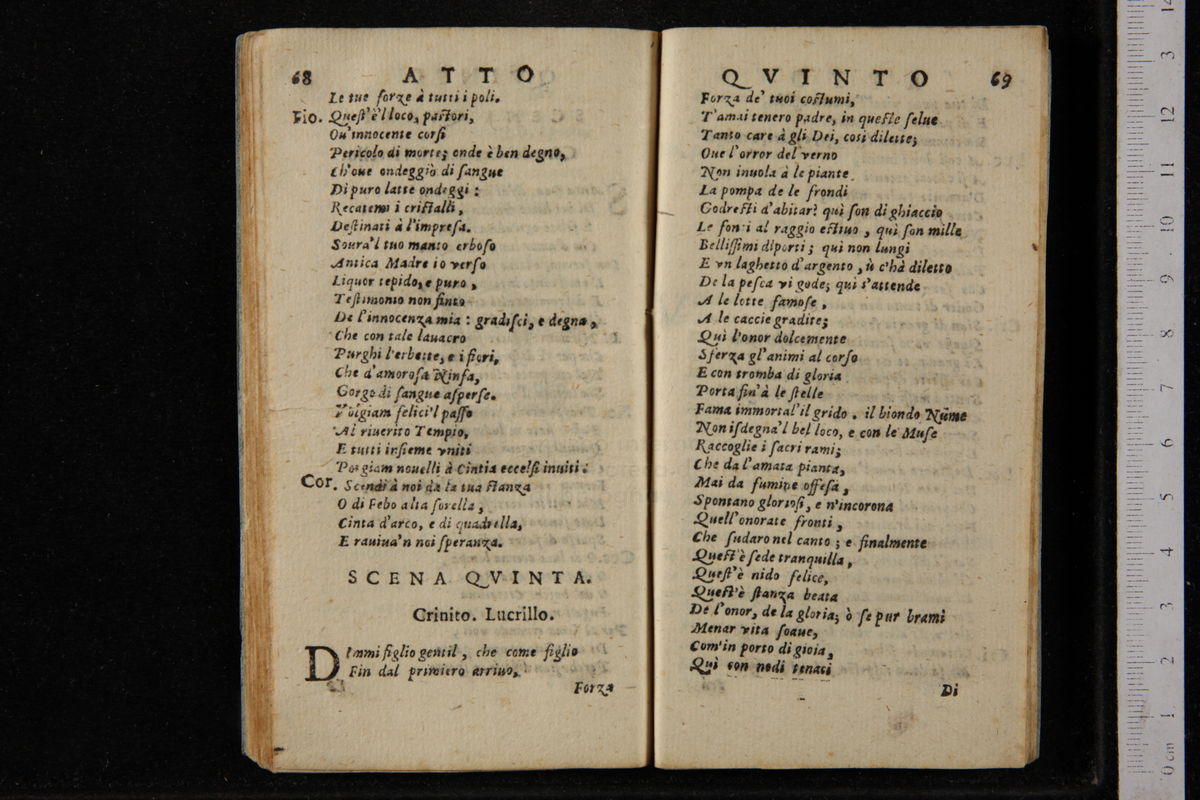 68 ATTO
Le tue forze à tutti i poli.
Fio. Quest'è'l loco, pastori,
Ou'innocente corsi
Pericolo di morte; onde è ben degno,
Ch'oue ondeggiò di sangue
Di puro latte ondeggi:
Recatemi i cristalli,
Destinati à l'impresa.
Soura'l tuo manto erboso
Antica Madre io verso
Liquor tepido, e puro,
Testimonio non finto
De l'innocenza mia: gradisci, e degna,
Che con tale lauacro
Purghi l'erbette, e i fiori,
Che d'amorosa Ninfa,
Gorgo di sangue asperse.
Volgiam felici'l passo
Al riuerito Tempio,
E tutti insieme vniti
Porgiam nouelli à Cintia eccelsi inuiti.
Cor. Scendi à noi da la tua stanza
O di Febo alta sorella,
Cinta d'arco, e di quadrella,
E rauiua'n noi speranza.
SCENA QVINTA.
Crinito. Lucrillo.
DImmi figlio gentil, che come figlio
Fin dal primiero arriuo,
Forza
QVINTO 69
Forza de' tuoi costumi,
T'amai tenero padre, in queste selue
Tanto care à gli Dei, così dilette;
Oue l'orror del verno
Non inuola à le piante
La pompa de le frondi
Godresti d'abitar? quì son di ghiaccio
Le fonti al raggio estiuo, quì son mille
Bellissimi diporti; quì non lungi
E vn laghetto d'argento, ù c'hà diletto
De la pesca vi gode; quì s'attende
A le lotte famose,
A le caccie gradite;
Quì l'onor dolcemente
Sferza gl'animi al corso
E con tromba di gloria
Porta fin'à le stelle
Fama immortal'il grido. il biondo Nũme
Non isdegna'l bel loco, e con le Muse
Raccoglie i sacri rami;
Che da l'amata pianta,
Mai da fumine offesa,
Spontano gloriosi, e n'incorona
Quell'onorate fronti,
Che sudaro nel canto; e finalmente
Quest'è sede tranquilla,
Quest'è nido felice,
Quest'è stanza beata
De l'onor, de la gloria; ò se pur brami
Menar vita soaue,
Com'in porto di gioia,
Quì con nodi tenaci
Di
0 cm 1 2 3 4 5 6 7 8 9 10 11 12 3 14